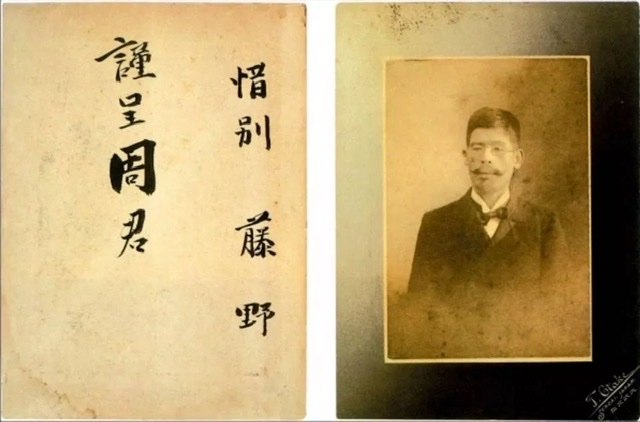 惜別
藤野
謹呈周君